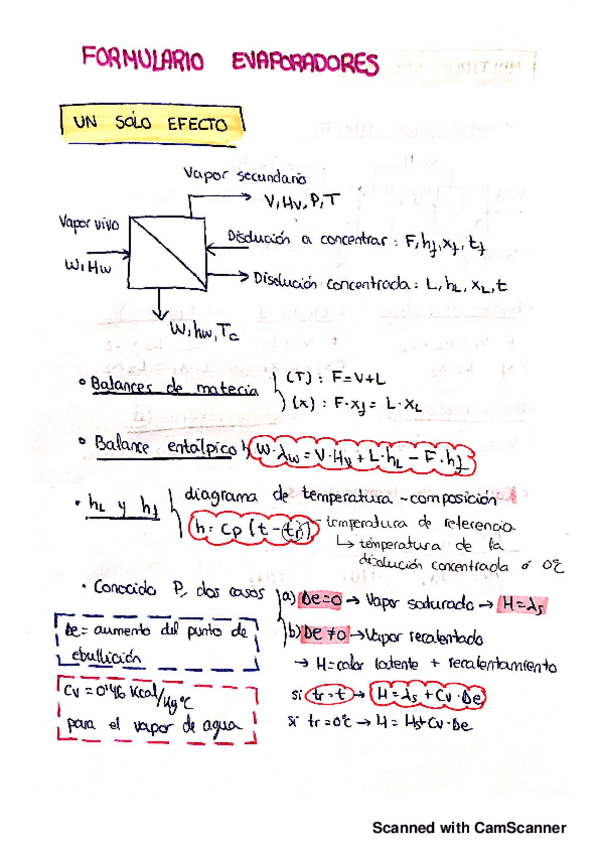 FORMULARIO EVAPORADORES
UN SÓLO EFECTO
Vapor secundario
V, Hv, P, T
Vapor vivo
W, Hw
Disolución a concentrar : F, hf, xf, tf
Disolución concentrada : L, hL, xL, t
W, hw, Tc
• Balances de materia (T) : F = V + L
(x) : F · xf = L · XL
• Balance entálpico W · λw = V · Hv + L · hL - F · hf
• hL y hf diagrama de temperatura - composición
h = Cp (t - tr) - temperatura de referencia
↳ temperatura de la
disolución concentrada ó 0ºC
• Conocido P, dos casos a) Δe = 0 → Vapor saturado → H = λs
b) Δe ≠ 0 → Vapor recalentado
→ H = calor latente + recalentamiento
si tr = t → H = λs + Cv · Δe
si tr = 0ºC → H = Hs + Cv · Δe
Δe = aumento del punto de
ebullición
Cv = 0'46 Kcal/Kg ºC
para el vapor de agua
Scanned with CamScanner